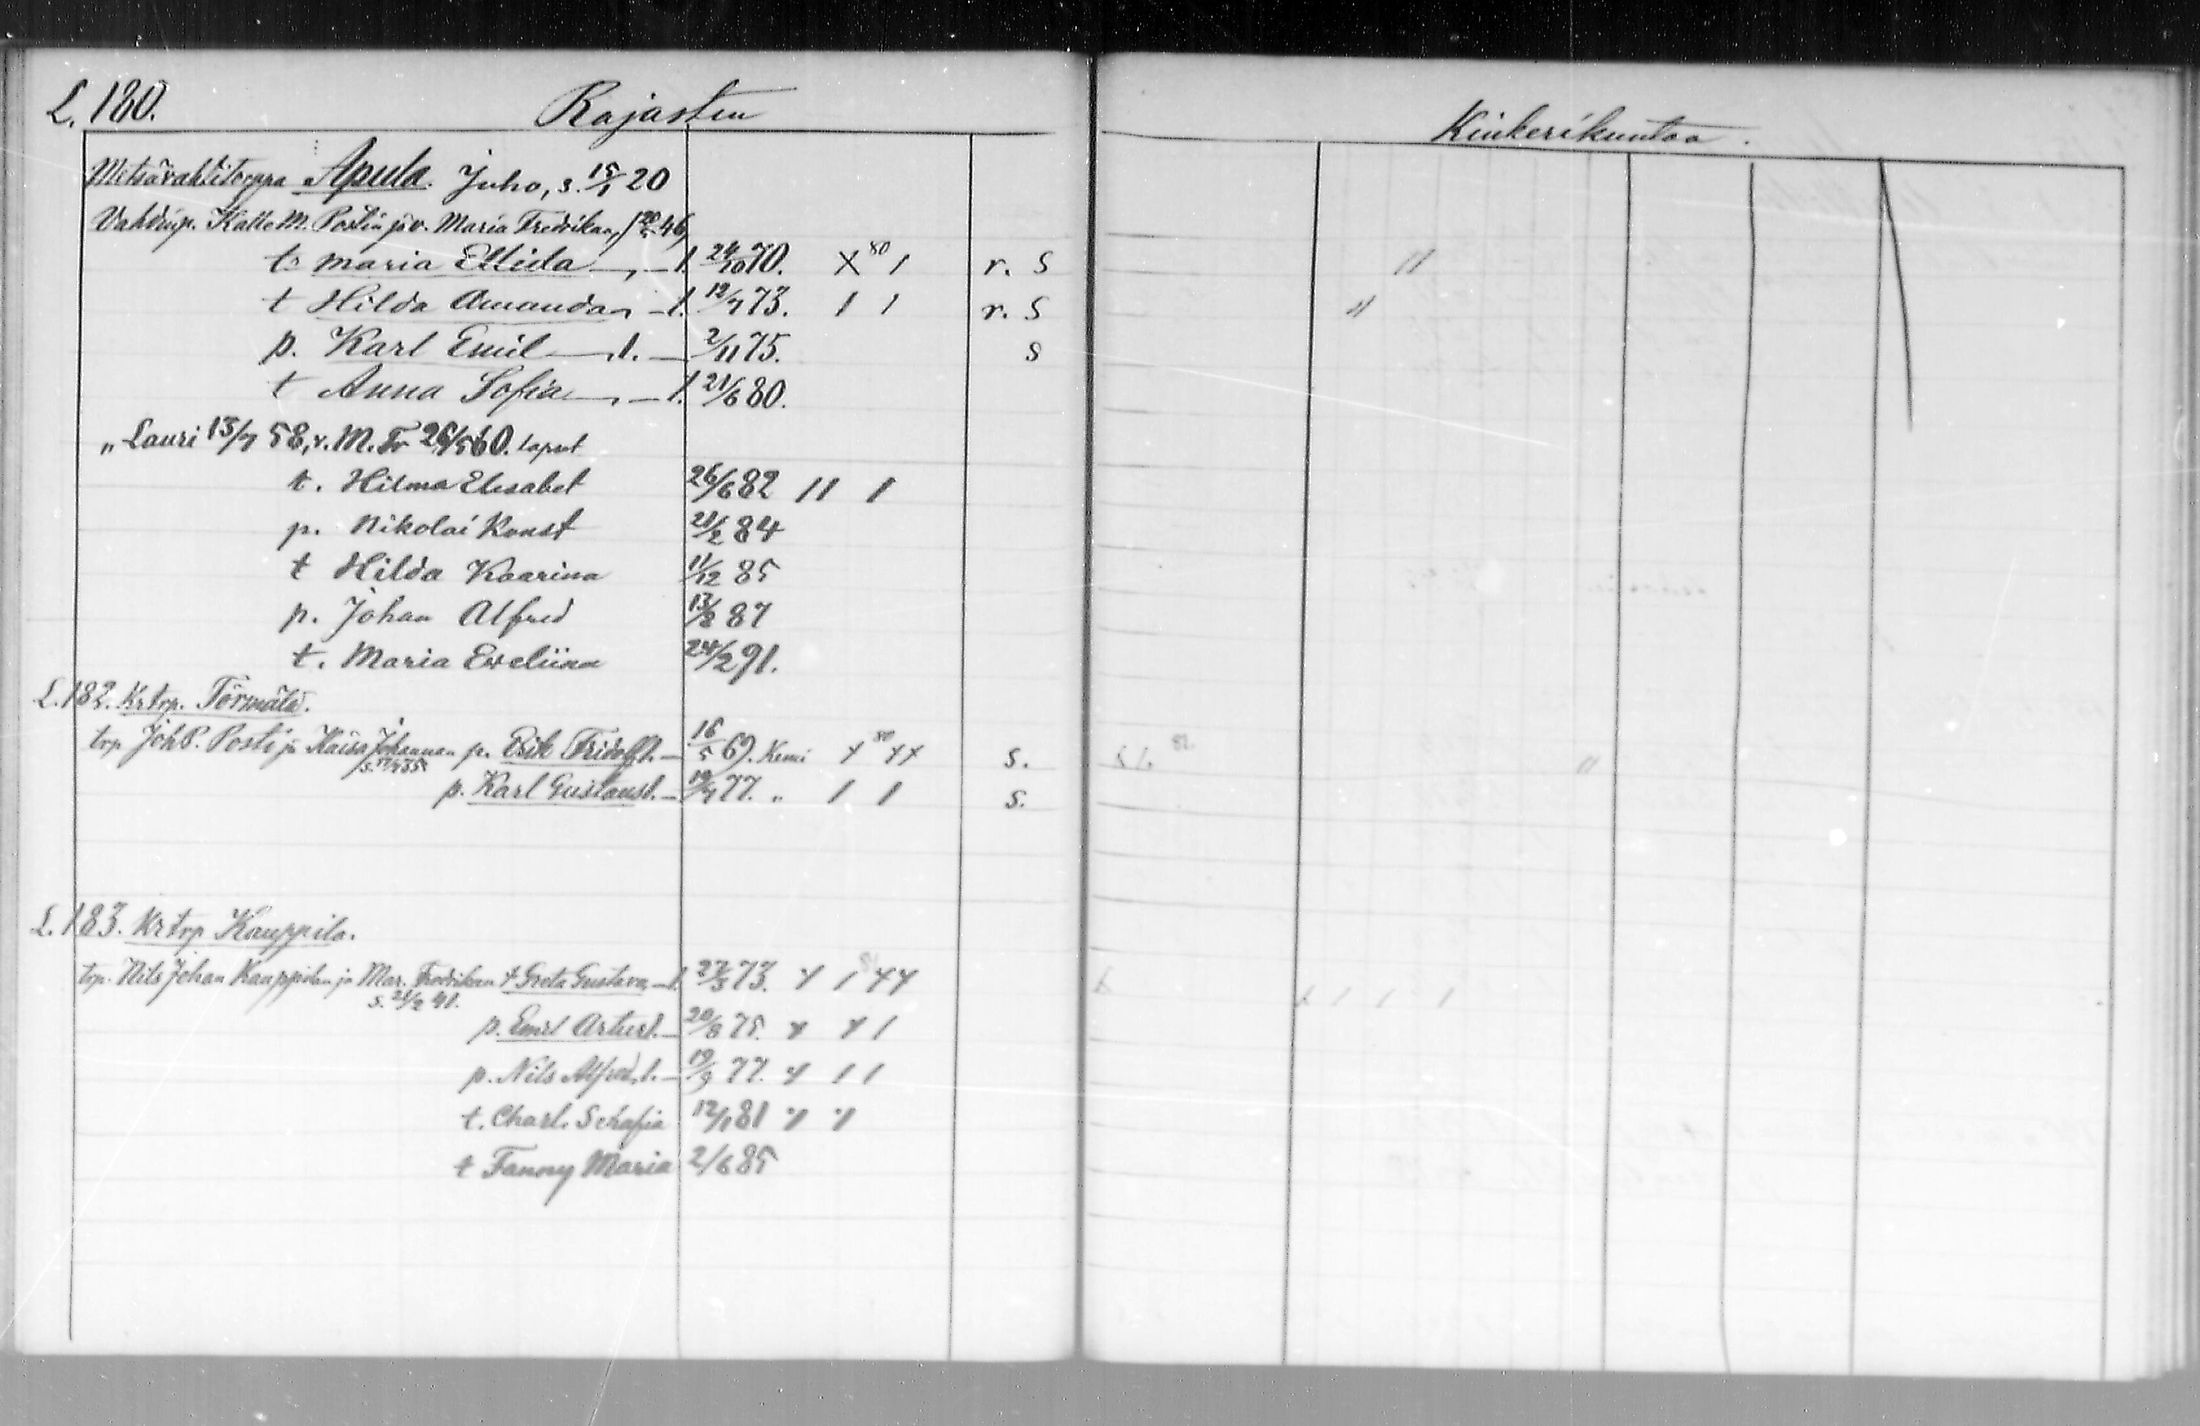 L. 180. Rajasten Kinkerikuntaa.
Metsävahtitorppa Apula. Juho, s. 15/1 20
Kalle M. Postin ja v. Maria Fredrikan, 20/5 46,
t. Maria Ellida — l. 24/10 70. X 80 / r. S "
t Hilda Amanda — l. 12/7 73. / / r. S "
p. Karl Emil — l. — 2/11 75. S
t Anna Sofia — l. 21/6 80.
„ Lauri 13/7 58, v. M. Fr 26/5 60. lapset
t. Hilma Elisabet 26/6 82 / / /
p. Nikolai Konst 21/2 84
t Hilda Kaarina 11/12 85
p. Johan Alfred 13/8 87
t. Maria Eveliina 24/2 91.
L. 182. Kr trp. Törmälä.
trp Joh P. Posti ja Kaisa Johannan p. Erik Fridolf l. — 16/5 69. Kemi x 80 x x s. "
p. Karl Gustaus l. — 19/7 77. „ / / s.
L. 183. Kr trp Kauppila.
trp. Nils Johan Kauppilan ja Mar. Fredrikan t Greta Gustava, — l. 27/3 73. x / x x
s. 21/2 41.
p. Emil Artur l. — 20/8 75. x x /
p. Nils Alfred, l. — 19/9 77. x / /
t. Charl. Schafia 12/1 81 x x
t Fanny Maria 2/6 85